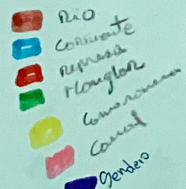 Rio
Corriente
Represa
Manglar
Camaronera
Canal
Sendero